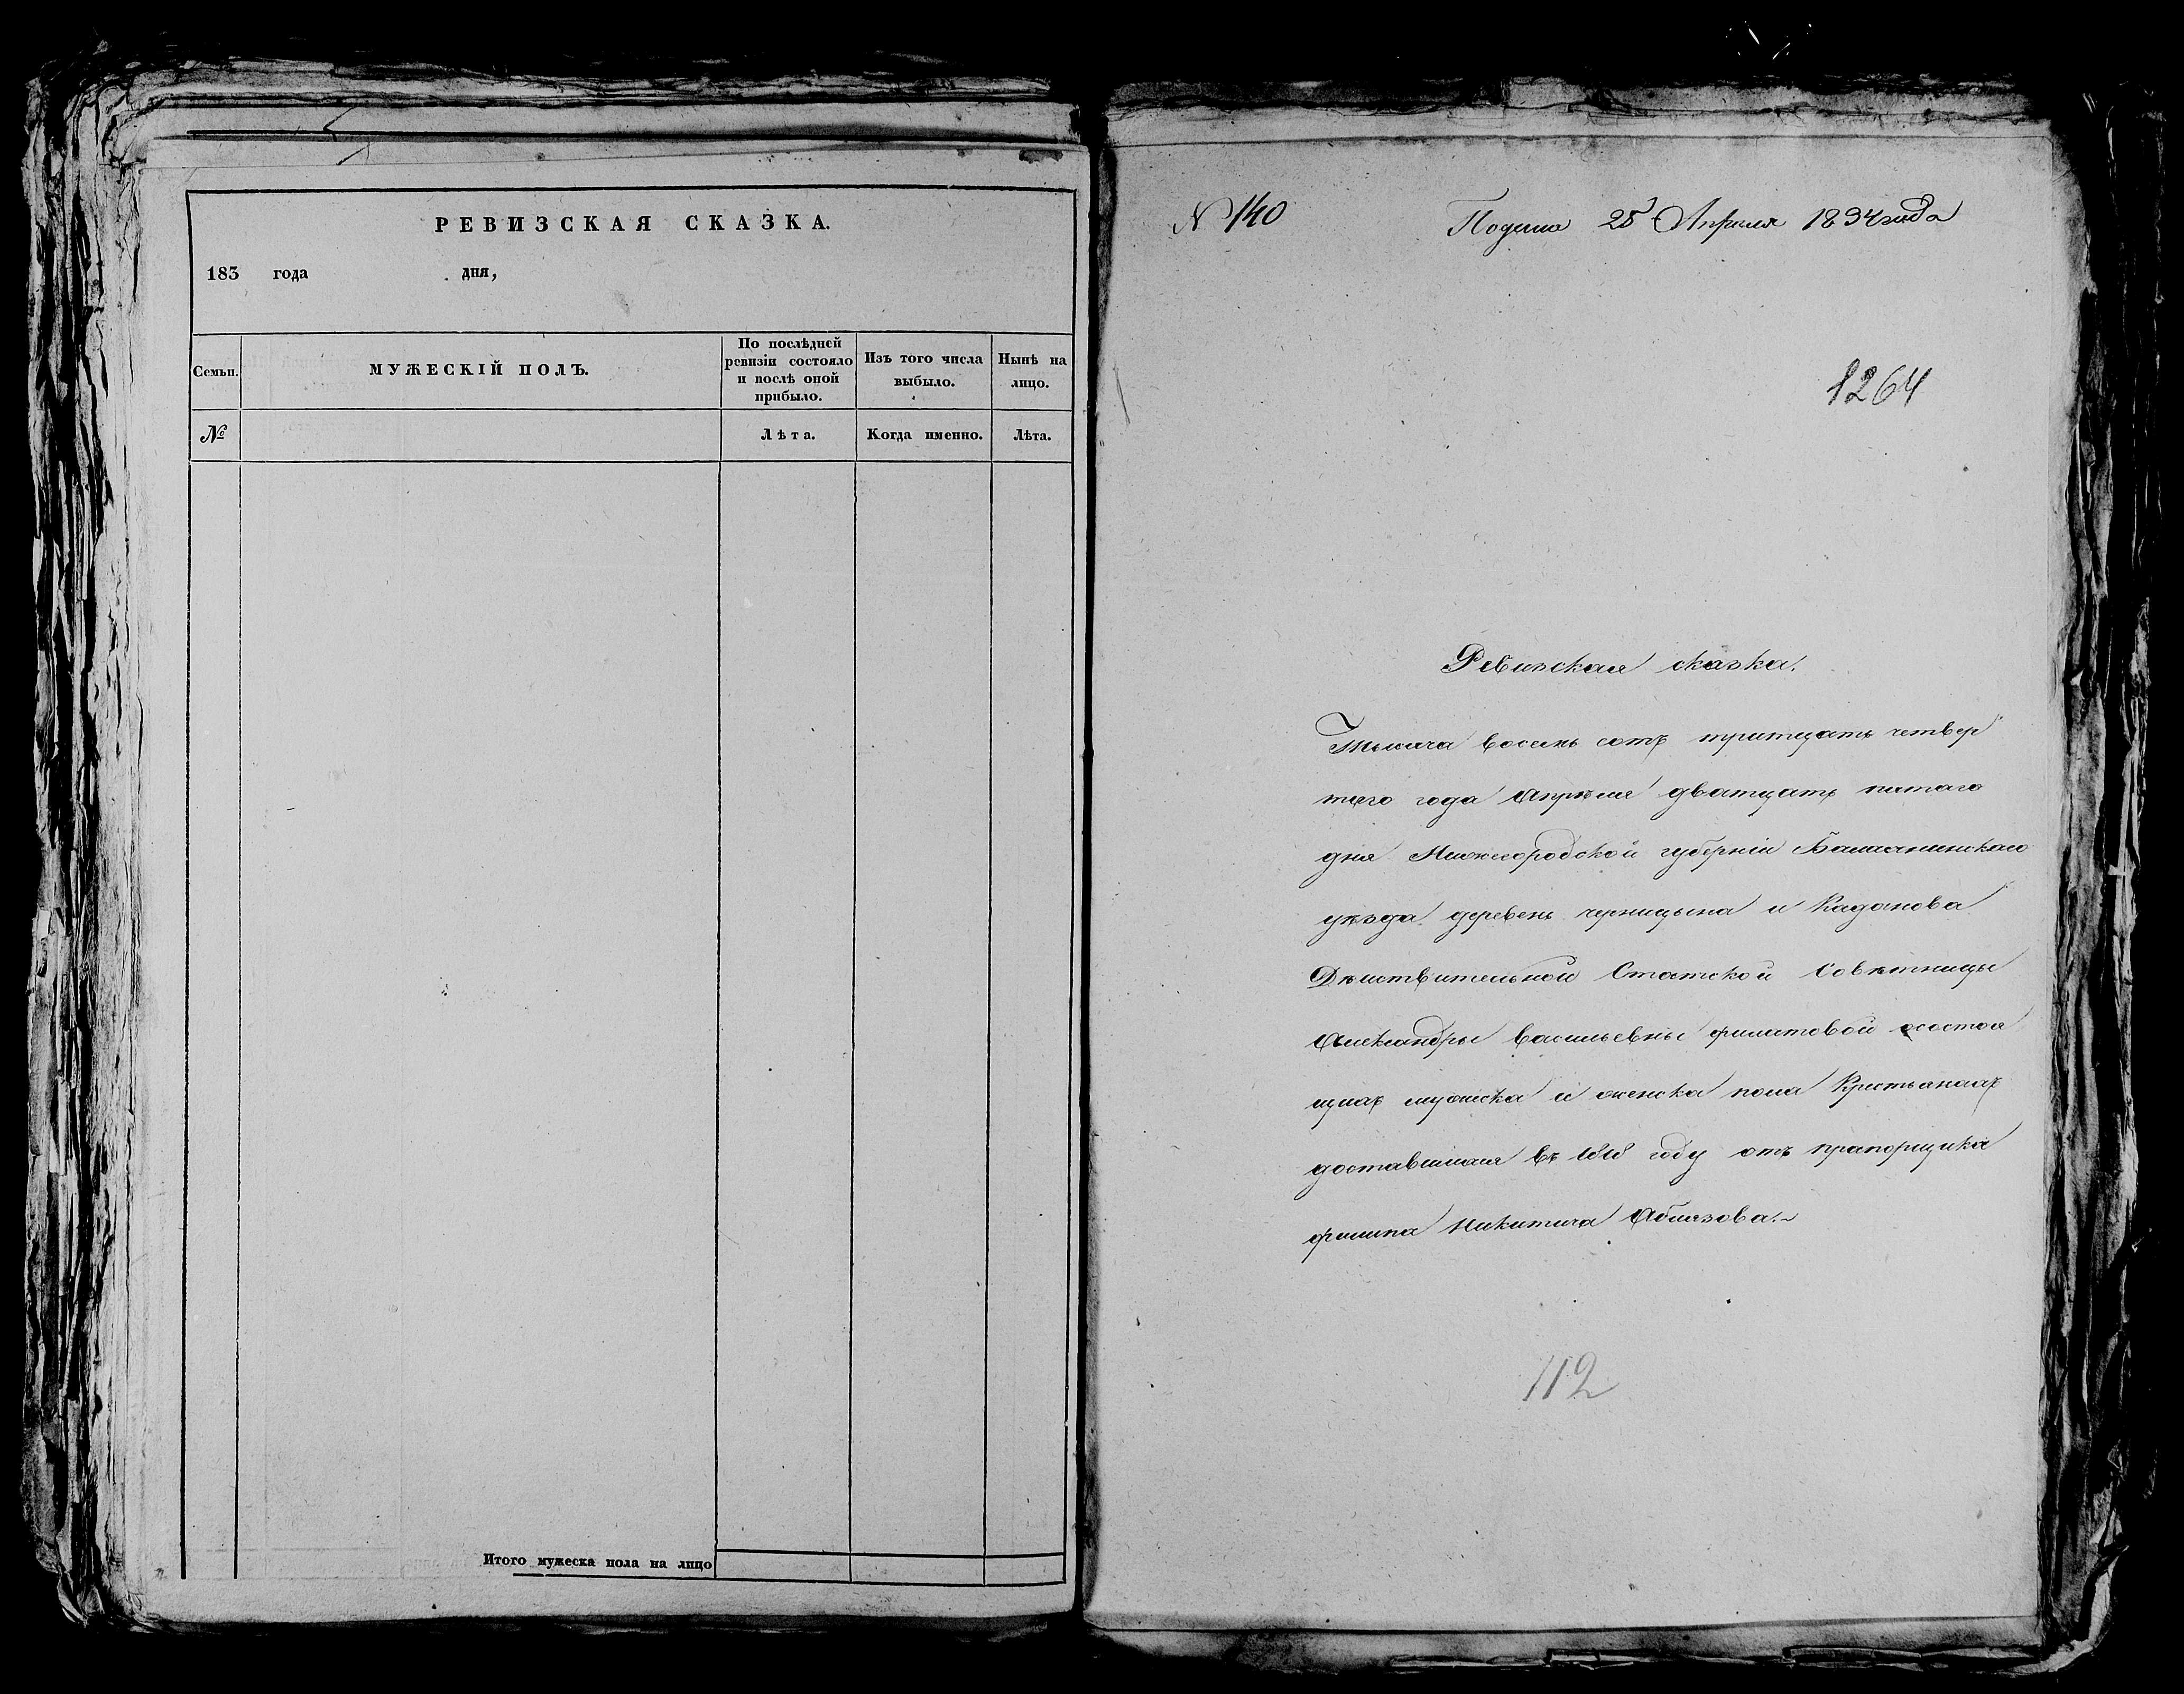 РЕВИЗСКАЯ СКАЗКА.
183 года дня,
Семьи.
МУЖЕСКІЙ ПОЛЪ.
По послѣдней
ревизіи состояло
и послѣ оной
прибыло.
Изъ того числа
выбыло.
Нынѣ на
лицо.
№
Лѣта.
Когда именно.
Лѣта.
Итого мужеска пола на лицо
N 140
Подана 25 Апреля 1834 года
1264
Ревизская сказка.
Тысяча восемь сотъ тритцать четвер
таго года Апреля дватцать пятаго
дня Нижегородской губерніи Балахнинскаго
уѣзда деревень черницына и Каданова
Дѣиствительной Статской Совѣтницы
Александры васильевны филатовой о состоя
щихъ мужска и женска пола Крестьянахъ
доставшихся въ 1818 году отъ прапорщика
филипа Никитича Аблязова.
112